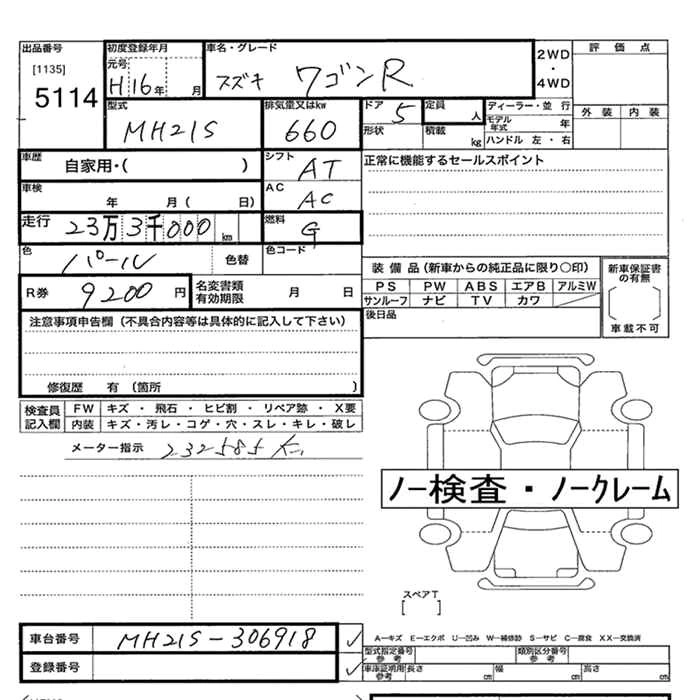 出品番号 初度登録年月 車名・グレード 2WD 評価点
[1135] 元号 ・
5114 H16年 月 スズキ ワゴンR 4WD
型式 排気量又はkw ドア 定員 ディーラー・並行 外装 内装
MH21S 660 5 人 モデル年式 年
形状 積載 kg ハンドル 左・右
車歴 自家用・( ) シフト AT 正常に機能するセールスポイント
車検 年 月( 日) AC AC
走行 23万3千000km 燃料 G
色 パール 色替 色コード
装備品(新車からの純正品に限り○印) 新車保証書の有無
R券 9200円 名変書類有効期限 月 日 PS PW ABS エアB アルミW
サンルーフ ナビ TV カワ
注意事項申告欄(不具合内容等は具体的に記入して下さい) 後日品 車載不可
修復歴 有(箇所 )
検査員記入欄 FW キズ・飛石・ヒビ割・リペア跡・X要
内装 キズ・汚レ・コゲ・穴・スレ・キレ・破レ
メーター指示 232585
ノー検査・ノークレーム
スペアT
[ ]
車台番号 MH21S-306918 ✓ A―キズ E―エクボ U―凹み W―補修跡 S―サビ C―腐食 XX―交換済
型式指定番号参考 類別区分番号参考
登録番号 ✓ 車庫証明用参考 長さ cm 幅 cm 高さ cm